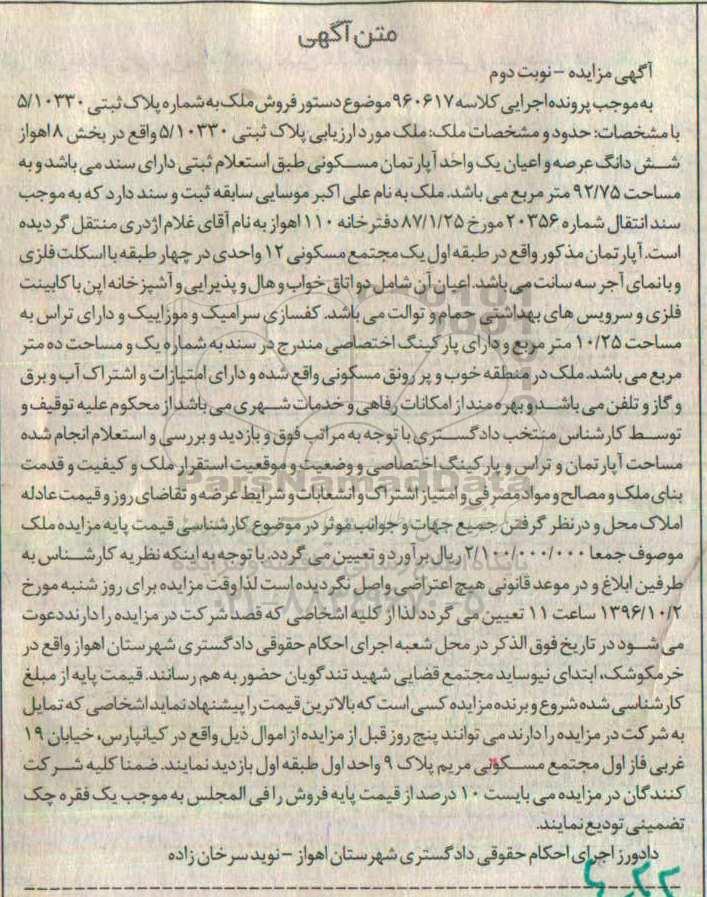 متن آگهی
آگهی مزایده - نوبت دوم
به موجب پرونده اجرایی کلاسه ۹۶۰۶۱۷ موضوع دستور فروش ملک به شماره پلاک ثبتی ۵/۱۰۳۳۰
با مشخصات: حدود و مشخصات ملک: ملک مورد ارزیابی پلاک ثبتی ۵/۱۰۳۳۰ واقع در بخش ۸ اهواز
شش دانگ عرصه و اعیان یک واحد آپارتمان مسکونی طبق استعلام ثبتی دارای سند می باشد و به
مساحت ۹۲/۷۵ متر مربع می باشد. ملک به نام علی اکبر موسایی سابقه ثبت و سند دارد که به موجب
سند انتقال شماره ۲۰۳۵۶ مورخ ۸۷/۱/۲۵ دفترخانه ۱۱۰ اهواز به نام آقای غلام اژدری منتقل گردیده
است. آپارتمان مذکور واقع در طبقه اول یک مجتمع مسکونی ۱۲ واحدی در چهار طبقه با اسکلت فلزی
و با نمای آجر سه سانت می باشد. اعیان آن شامل دو اتاق خواب و هال و پذیرایی و آشپزخانه اپن با کابینت
فلزی و سرویس های بهداشتی حمام و توالت می باشد. کفسازی سرامیک و موزاییک و دارای تراس به
مساحت ۱۰/۲۵ متر مربع و دارای پارکینگ اختصاصی مندرج در سند به شماره یک و مساحت ده متر
مربع می باشد. ملک در منطقه خوب و پر رونق مسکونی واقع شده و دارای امتیازات و اشتراک آب و برق
و گاز و تلفن می باشد و بهره مند از امکانات رفاهی و خدمات شهری می باشد از محکوم علیه توقیف و
توسط کارشناس منتخب دادگستری با توجه به مراتب فوق و بازدید و بررسی و استعلام انجام شده
مساحت آپارتمان و تراس و پارکینگ اختصاصی و وضعیت و موقعیت استقرار ملک و کیفیت و قدمت
بنای ملک و مصالح و مواد مصرفی و امتیاز اشتراک و انشعابات و شرایط عرضه و تقاضای روز و قیمت عادله
املاک محل و در نظر گرفتن جمیع جهات و جوانب موثر در موضوع کارشناسی قیمت پایه مزایده ملک
موصوف جمعا ۲/۱۰۰/۰۰۰/۰۰۰ ریال برآورد و تعیین می گردد. با توجه به اینکه نظریه کارشناس به
طرفین ابلاغ و در موعد قانونی هیچ اعتراضی واصل نگردیده است لذا وقت مزایده برای روز شنبه مورخ
۱۳۹۶/۱۰/۲ ساعت ۱۱ تعیین می گردد لذا از کلیه اشخاصی که قصد شرکت در مزایده را دارند دعوت
می شود در تاریخ فوق الذکر در محل شعبه اجرای احکام حقوقی دادگستری شهرستان اهواز واقع در
خرمکوشک، ابتدای نیوساید مجتمع قضایی شهید تندگویان حضور به هم رسانند. قیمت پایه از مبلغ
کارشناسی شده شروع و برنده مزایده کسی است که بالاترین قیمت را پیشنهاد نماید اشخاصی که تمایل
به شرکت در مزایده را دارند می توانند پنج روز قبل از مزایده از اموال ذیل واقع در کیانپارس، خیابان ۱۹
غربی فاز اول مجتمع مسکونی مریم پلاک ۹ واحد اول طبقه اول بازدید نمایند. ضمنا کلیه شرکت
کنندگان در مزایده می بایست ۱۰ درصد از قیمت پایه فروش را فی المجلس به موجب یک فقره چک
تضمینی تودیع نمایند.
دادورز اجرای احکام حقوقی دادگستری شهرستان اهواز - نوید سرخان زاده
ParsNamadData